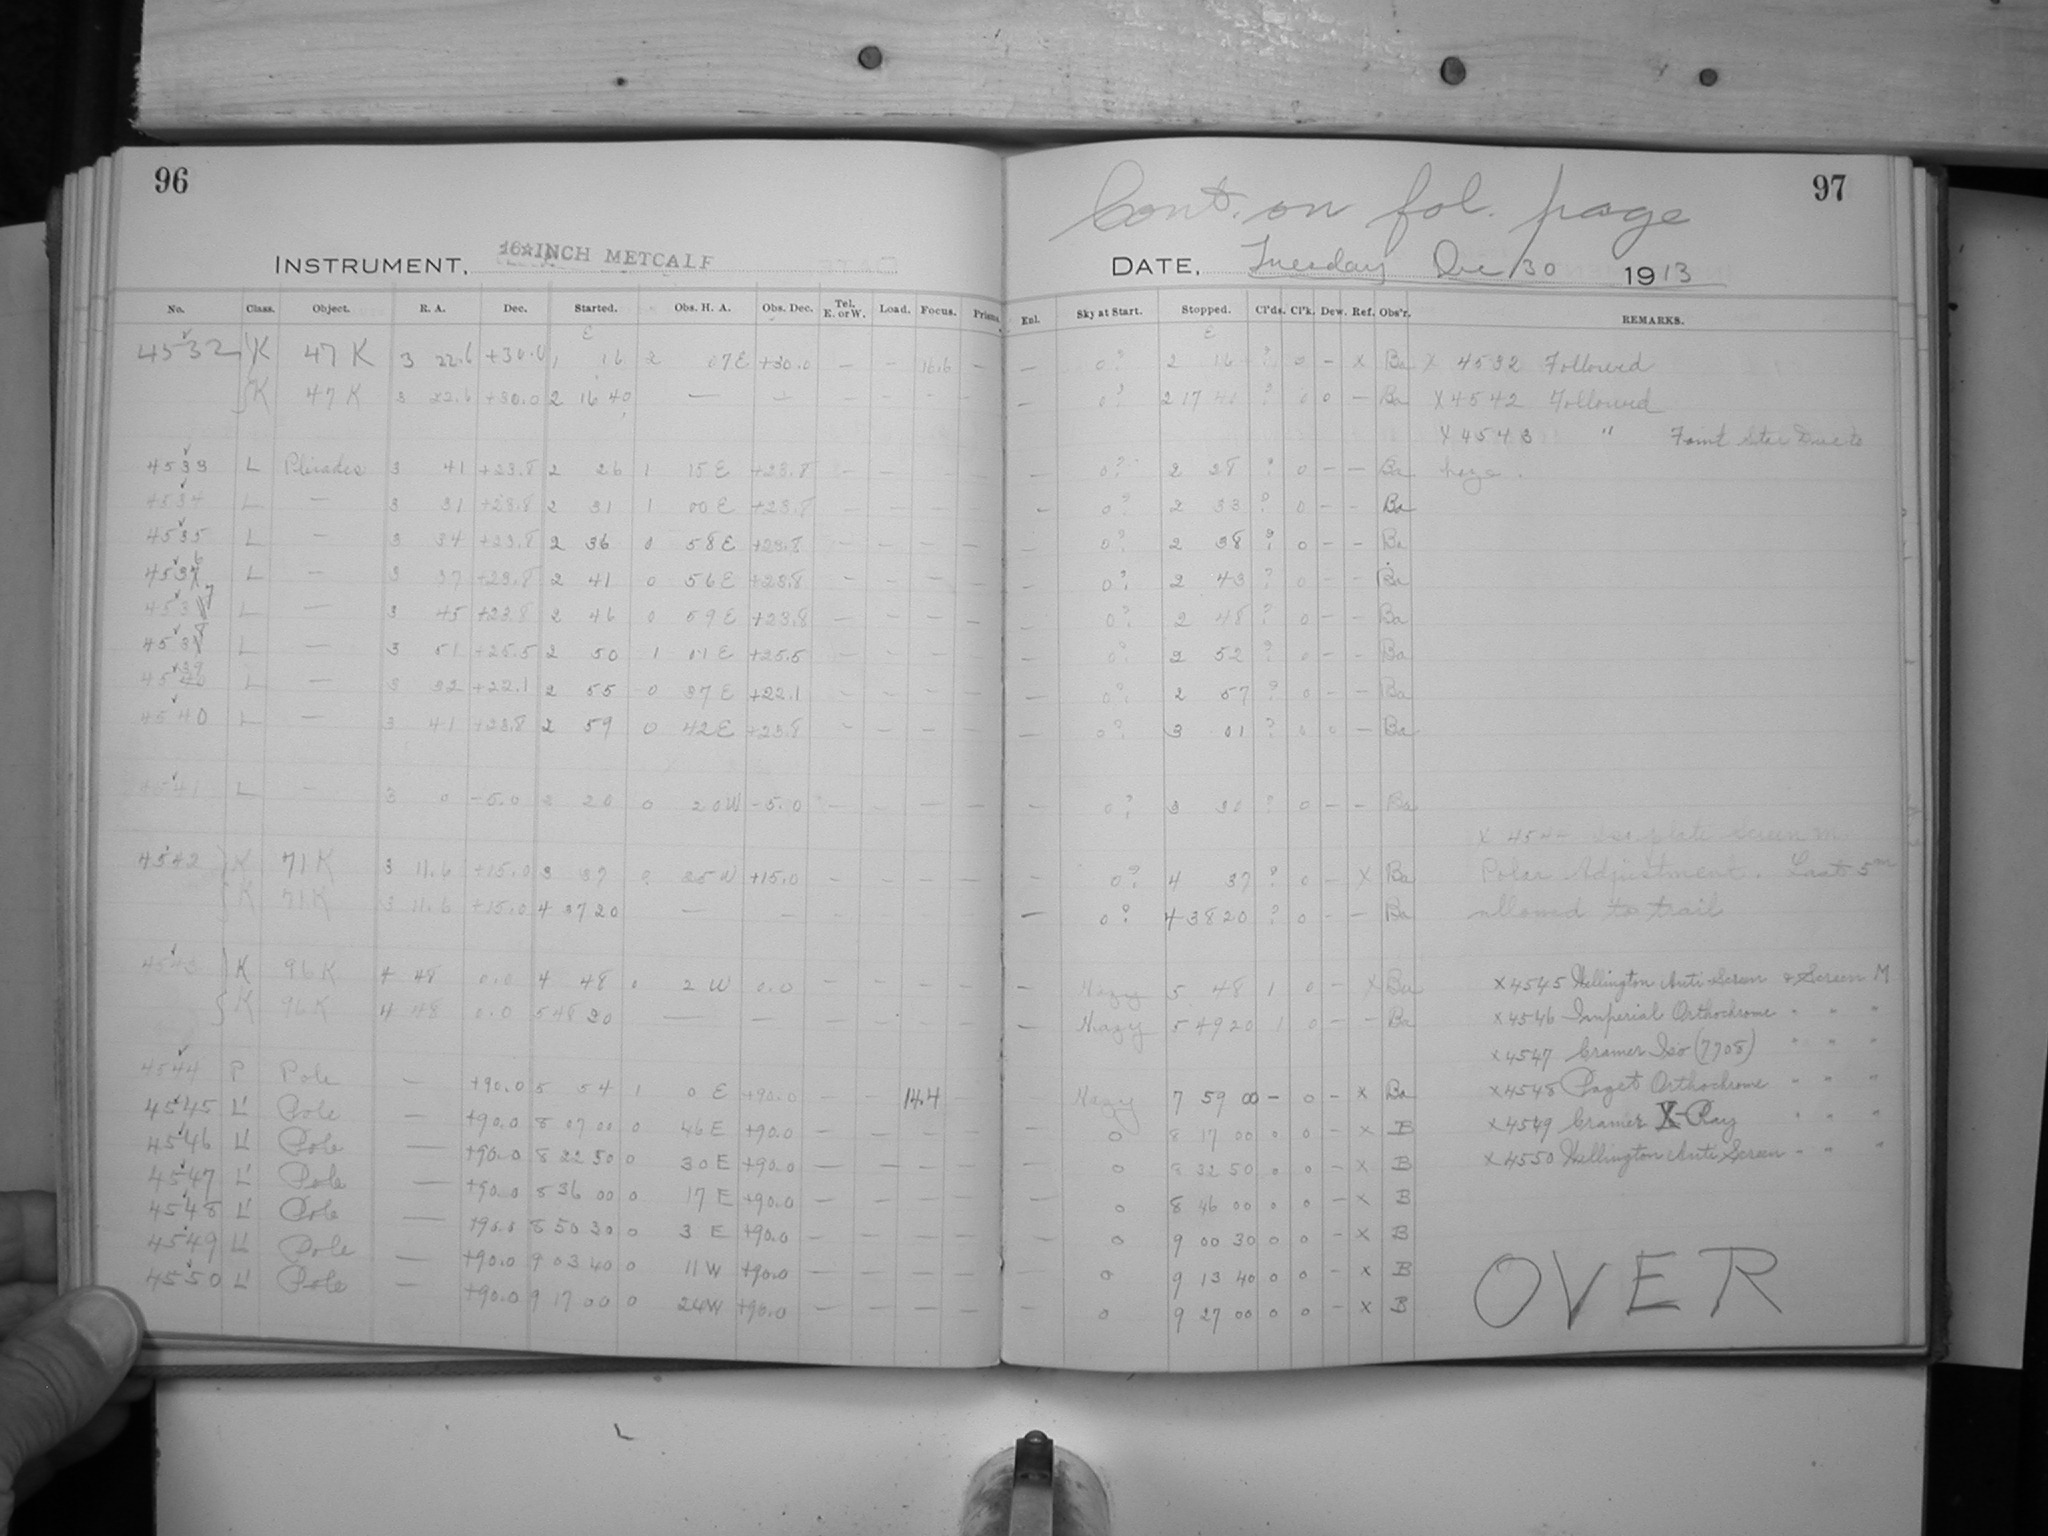 96
INSTRUMENT, 16 INCH METCALF
No. Class. Object. R. A. Dec. Started. Obs. H. A. Obs. Dec. Tel. E. or W. Load. Focus. Prisms.
E
4532 K 47 K 3 22.6 +30.0 1 16 2 07 E +30.0 — — 16.6 —
K 47 K 3 22.6 +30.0 2 16 40 — — — — — —
4533 L Pleiades 3 41 +23.8 2 26 1 15 E +23.8 — — — —
4534 L — 3 31 +23.8 2 31 1 00 E +23.8 — — — —
4535 L — 3 34 +23.8 2 36 0 58 E +23.8 — — — —
4536 L — 3 37 +23.8 2 41 0 56 E +23.8 — — — —
4537 L — 3 45 +23.8 2 46 0 59 E +23.8 — — — —
4538 L — 3 51 +25.5 2 50 1 01 E +25.5 — — — —
4539 L — 3 32 +22.1 2 55 0 37 E +22.1 — — — —
4540 L — 3 41 +23.8 2 59 0 42 E +23.8 — — — —
4541 L — 3 0 -5.0 20 0 20 W -5.0 — — — —
4542 K 71 K 3 11.6 +15.0 3 37 0 35 W +15.0 — — — —
K 71 K 3 11.6 +15.0 4 37 20 — — — — — —
4543 K 96 K 4 48 0.0 4 48 0 2 W 0.0 — — — —
K 96 K 4 48 0.0 5 48 30 — — — — — —
4544 P Pole — +90.0 5 54 1 0 E +90.0 — — 14.4 —
4545 L' Pole — +90.0 8 07 00 0 46 E +90.0 — — — —
4546 L' Pole — +90.0 8 22 50 0 30 E +90.0 — — — —
4547 L' Pole — +90.0 8 36 00 0 17 E +90.0 — — — —
4548 L' Pole — +90.0 8 50 30 0 3 E +90.0 — — — —
4549 L' Pole — +90.0 9 03 40 0 11 W +90.0 — — — —
4550 L' Pole — +90.0 9 17 00 0 24 W +90.0 — — — —
97
Cont. on fol. page
DATE, Tuesday Dec 30 1913
Enl. Sky at Start. Stopped. Cl'ds. Cl'k. Dew. Ref. Obs'r. REMARKS.
E
— 0? 2 16 ? 0 — X Ba X 4532 Followed
— 0? 2 17 40 ? 0 0 — Ba X 4542 Followed
X 4543 " Faint Star Due to
— 0? 2 28 ? 0 — — Ba haze.
— 0? 2 33 ? 0 — — Ba
— 0? 2 38 ? 0 — — Ba
— 0? 2 43 ? 0 — — Ba
— 0? 2 48 ? 0 — — Ba
— 0? 2 52 ? 0 — — Ba
— 0? 2 57 ? 0 — — Ba
— 0? 3 01 ? 0 0 — Ba
— 0? 3 30 ? 0 — — Ba
X 4544 Iso plate Screen M.
— 0? 4 37 ? 0 — X Ba Polar Adjustment. Last 5m
— 0? 4 38 20 ? 0 — — Ba allowed to trail
— Hazy 5 48 1 0 — X Ba X 4545 Wellington Anti Screen & Screen M
— Hazy 5 49 20 1 0 — — Ba X 4546 Imperial Orthochrome " " "
X 4547 Cramer Iso (7708) " " "
Hazy 7 59 00 — 0 — X Ba X 4548 Paget Orthochrome " " "
— 0 8 17 00 0 0 — X B X 4549 Cramer X-Ray " " "
— 0 8 32 50 0 0 — X B X 4550 Wellington Anti Screen " " "
— 0 8 46 00 0 0 — X B
— 0 9 00 30 0 0 — X B
— 0 9 13 40 0 0 — X B
— 0 9 27 00 0 0 — X B
OVER